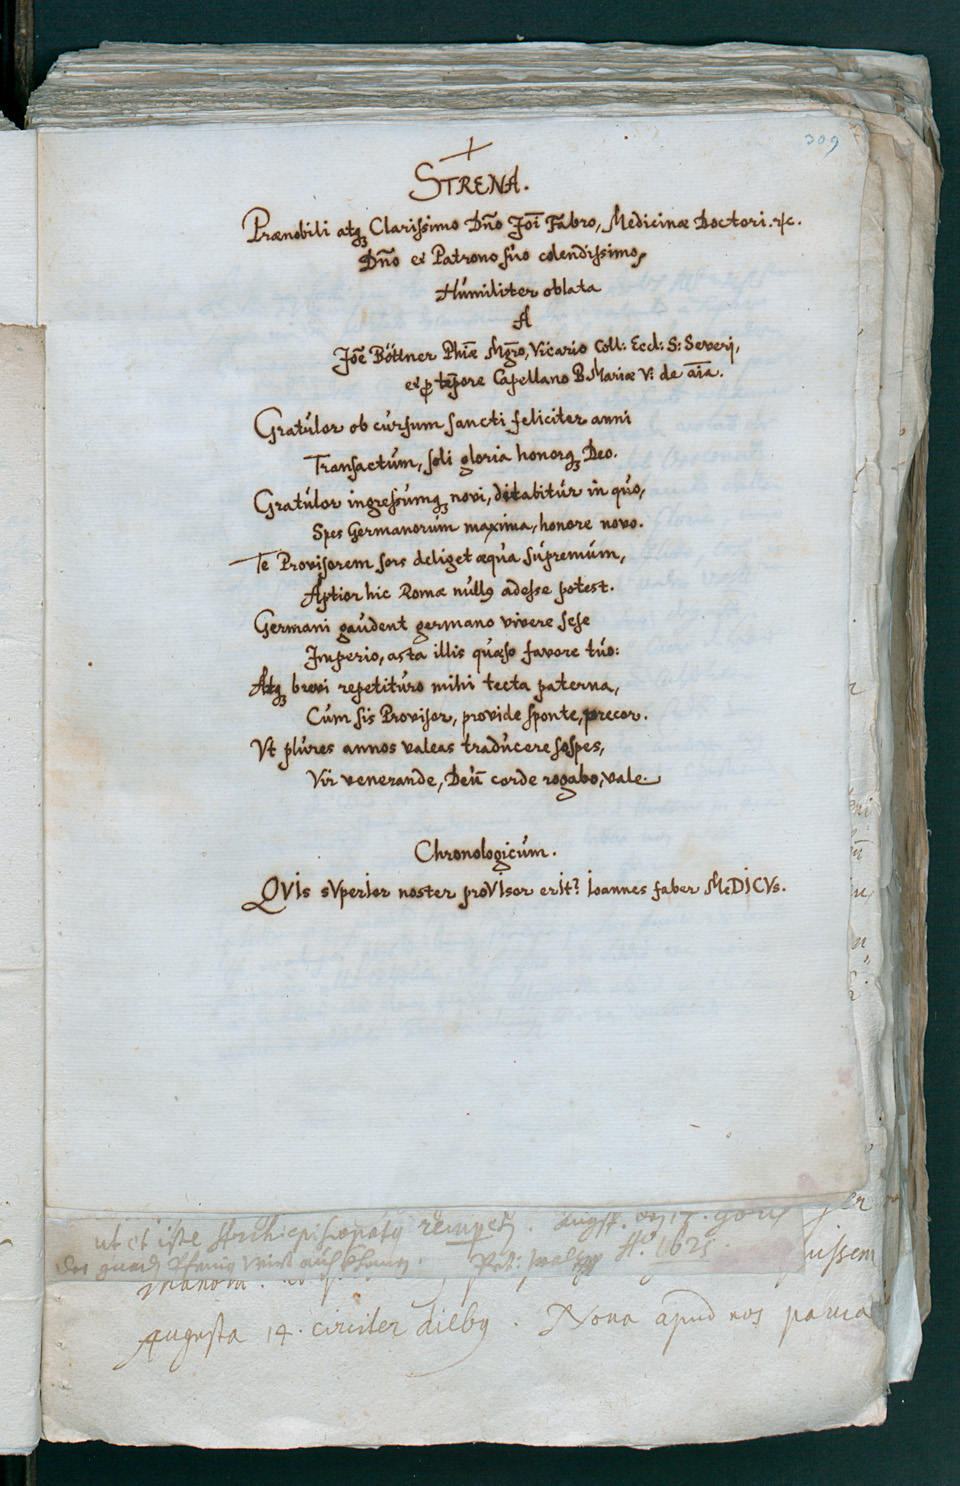 309
+
STRENA.
Prænobili atq₃ Clarissimo Dño Joī Fabro, Medicinæ Doctori. ꝛc.
Dño et Patrono sùo colendissimo,
Hùmiliter oblata
A
Joē Böttner Phiæ Mgrō, Vicario Coll: Eccl: S: Severj,
et ꝑ tēpore Capellano B. Mariæ V: de aīa.
Gratùlor ob cùrsum sancti feliciter anni
Transactùm, soli gloria honorq₃ Deo.
Gratùlor ingressùmq₃ novi, ditabitùr in qùo,
Spes Germanorùm maxima, honore novo.
Te Provisorem sors deliget æqùa sùpremùm,
Aptior hic Romæ nùllꝰ adesse potest.
Germani gaùdent germano vivere sese
Imperio, asta illis qùæso favore tùo:
Atq₃ brevi repetitùro mihi tecta paterna,
Cùm sis Provisor, provide sponte, precor.
Vt plùres annos valeas tradùcere sospes,
Vir venerande, Deū corde rogabo, vale.
Chronologicùm.
QVIs sVperIor noster proVIsor erIt? Ioannes faber MeDICVs.
ut et iste Archiepiscopatꝰ
Aº 1625
ussem
Augusta 14. circiter diebꝰ. Nova apud nos pauca